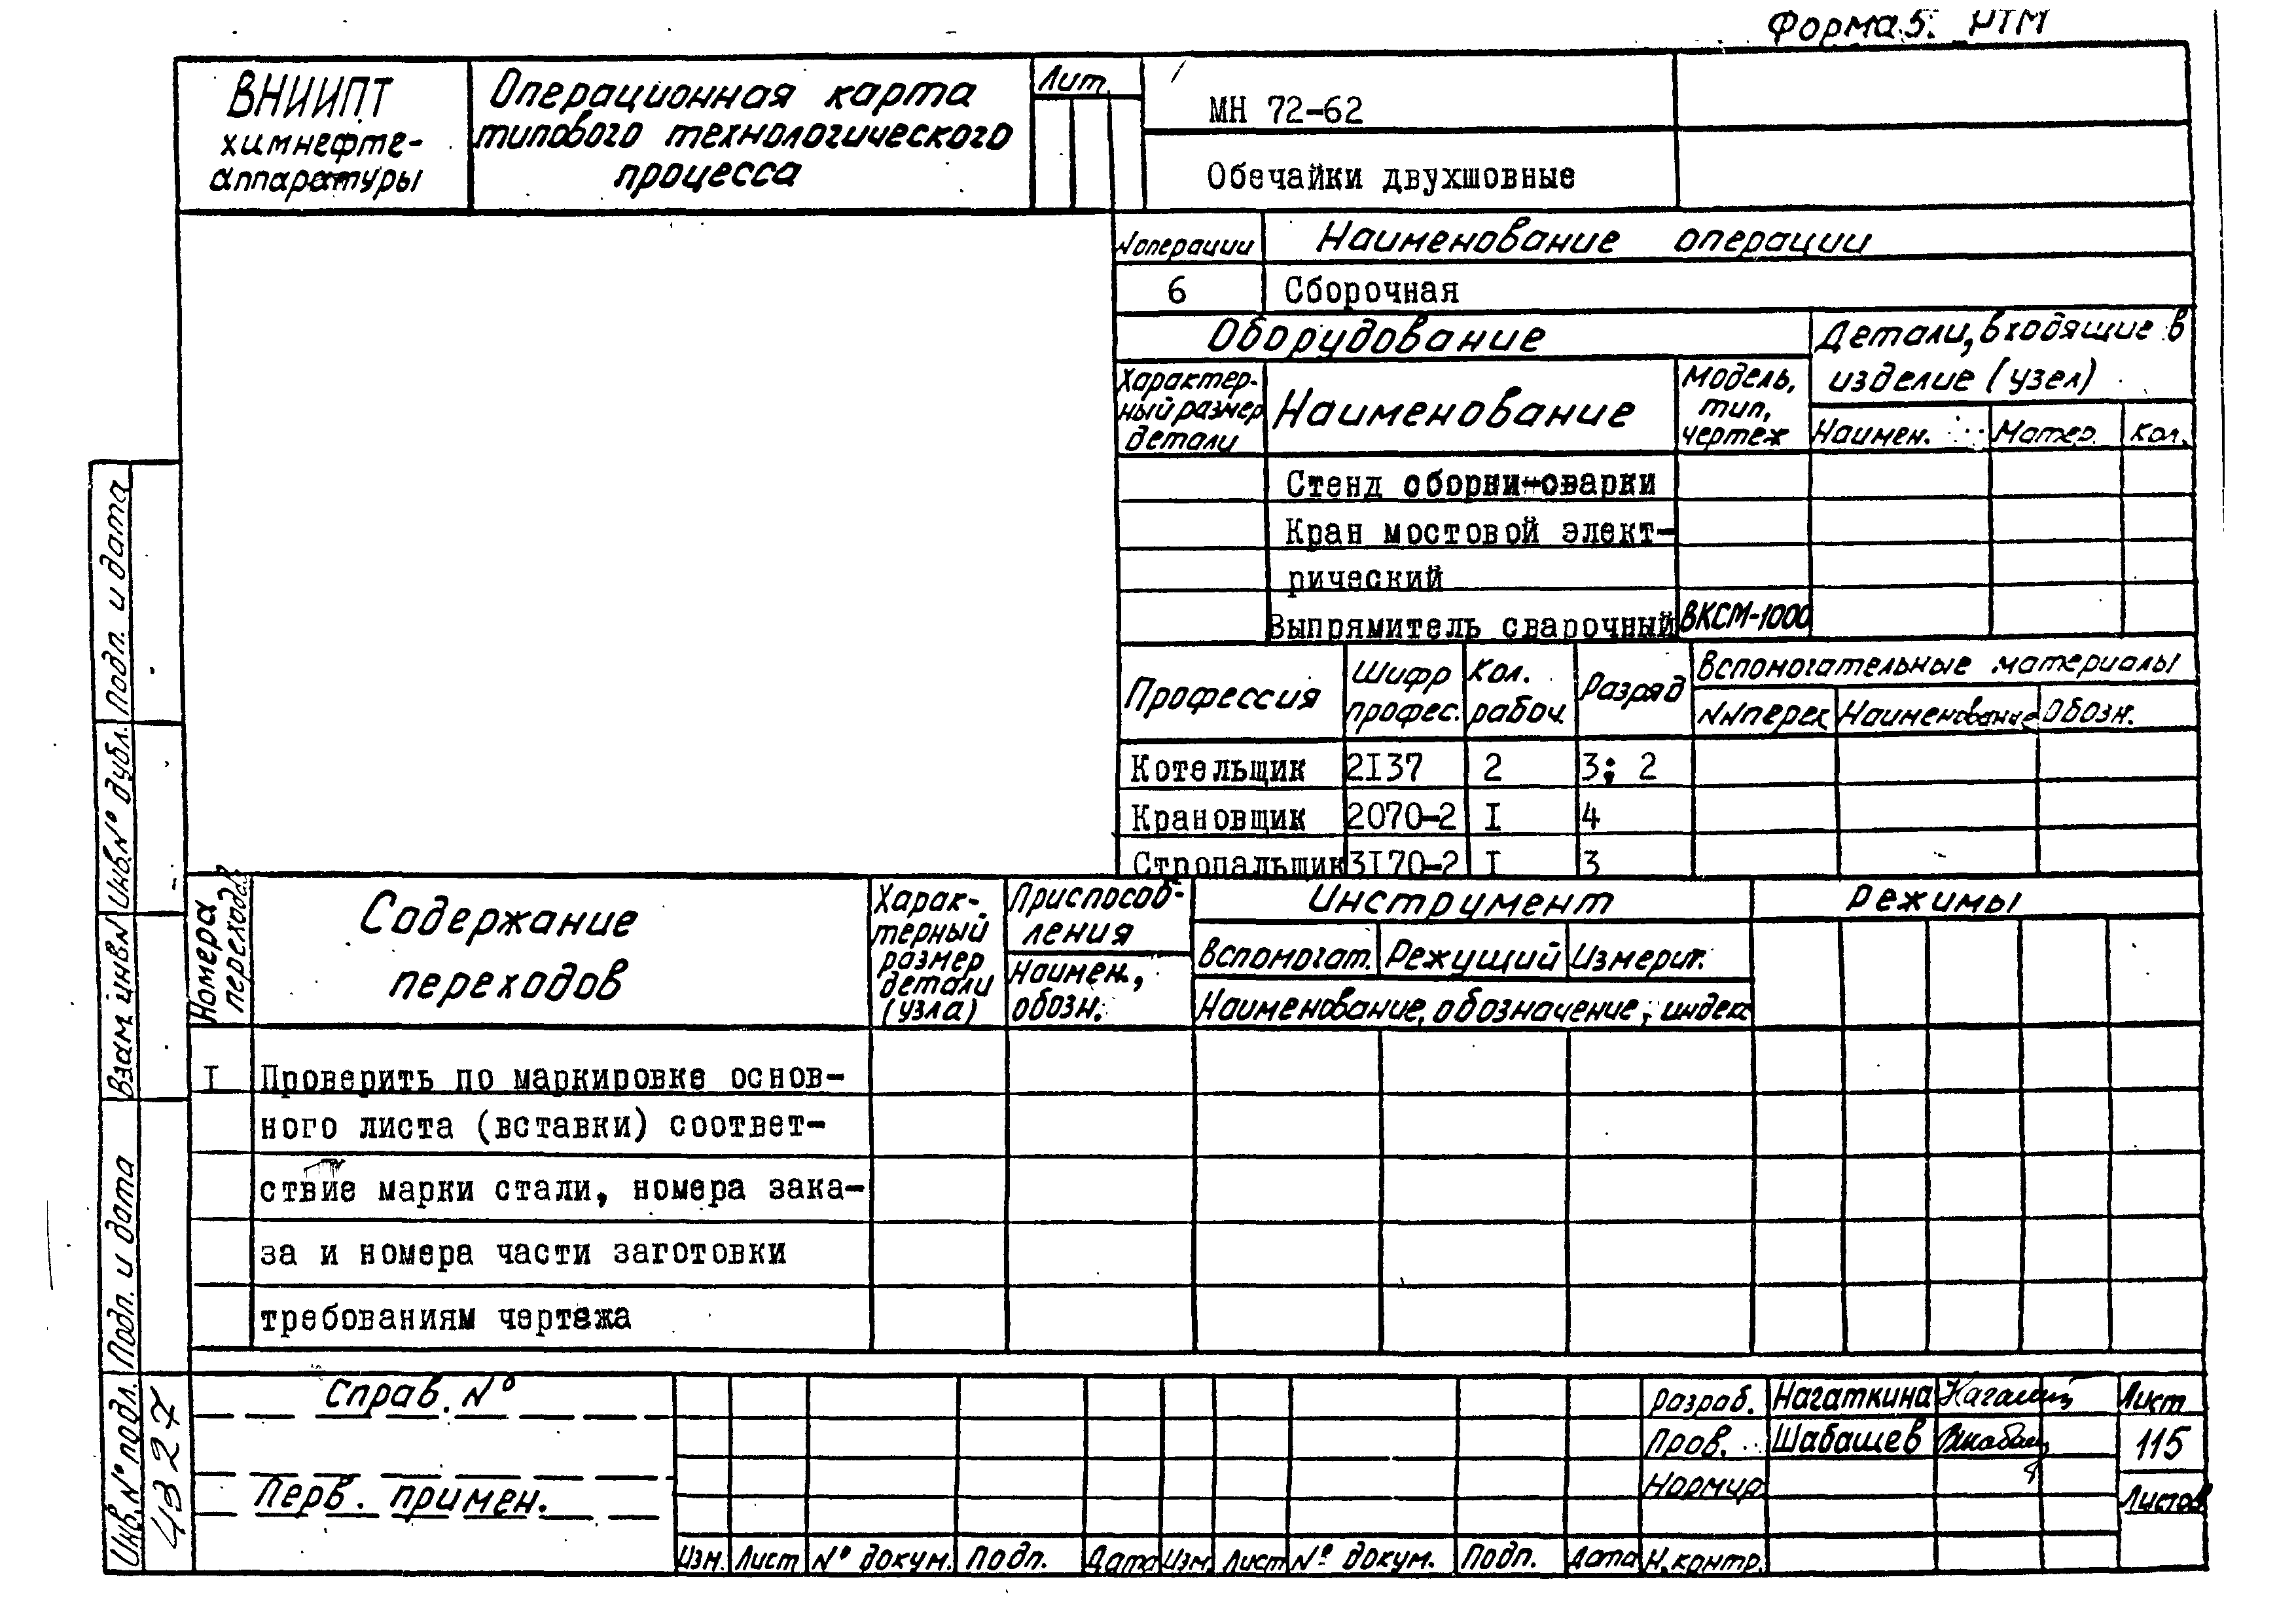 Форма 5. РТМ
ВНИИПТ
химнефте-
аппаратуры
Операционная карта
типового технологического
процесса
Лит.
МН 72-62
Обечайки двухшовные
N операции
Наименование операции
6
Сборочная
Оборудование
Детали, входящие в
изделие (узел)
Характер-
ный размер
детали
Наименование
Модель,
тип,
чертеж
Наимен.
Матер.
Кол.
Стенд сборки-сварки
Кран мостовой элект-
рический
Выпрямитель сварочный
ВКСМ-1000
Профессия
Шифр
профес.
Кол.
рабоч.
Разряд
Вспомогательные материалы
NN перех
Наименование
Обозн.
Котельщик 2I37 2 3; 2
Крановщик 2070-2 I 4
Стропальщик 3I70-2 I 3
Номера
переходов
Содержание
переходов
Харак-
терный
размер
детали
(узла)
Приспособ-
ления
Наимен.,
обозн.
Инструмент
Вспомогат.
Режущий
Измерит.
Наименование, обозначение, индекс
Режимы
I Проверить по маркировке основ-
ного листа (вставки) соответ-
ствие марки стали, номера зака-
за и номера части заготовки
требованиям чертежа
Справ. №
Перв. примен.
Изм. Лист № докум. Подп. Дата Изм. Лист № докум. Подп. Дата
Разраб. Нагаткина
Пров. Шабащев
Нормир
Н. контр.
Лист
115
Листов
Подп. и дата
Инв. № дубл.
Взам. инв. N
Подп. и дата
Инв. № подл.
4327